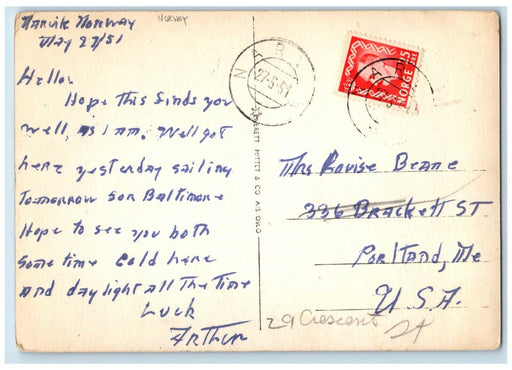 Narvik Norway
May 27/51
NORWAY
Hello.
Hope this finds you
well, as I am. Well got
here yesterday sailing
Tomorrow for Baltimore
Hope to see you both
Some time Cold here
And day light all The Time
Luck
Arthur
NAR
27-5-51
NORGE
MITTET & CO. A/S OSLO
Mrs Louise Beane
336 Brackett ST
Portland, Me
U.S.A.
29 Crescent
St